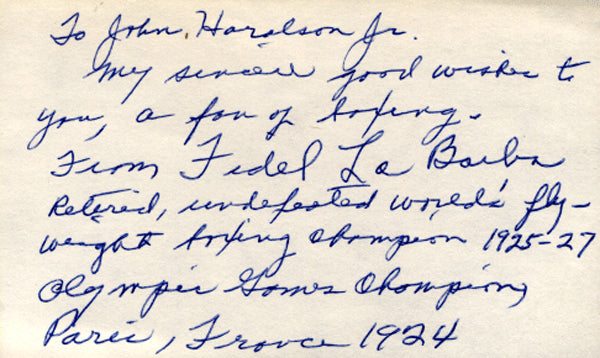 To John Haralson Jr.
My sincere good wishes to
you, a fan of boxing.
From Fidel La Barba
Retired, undefeated world's fly-
weight boxing champion 1925-27
Olympic Games Champion,
Paris, France 1924